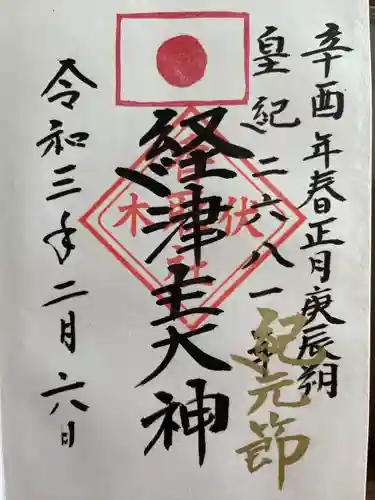 辛酉年春正月庚辰朔
皇紀二六八一年
紀元節
経津主大神
伏木
令和三年二月六日